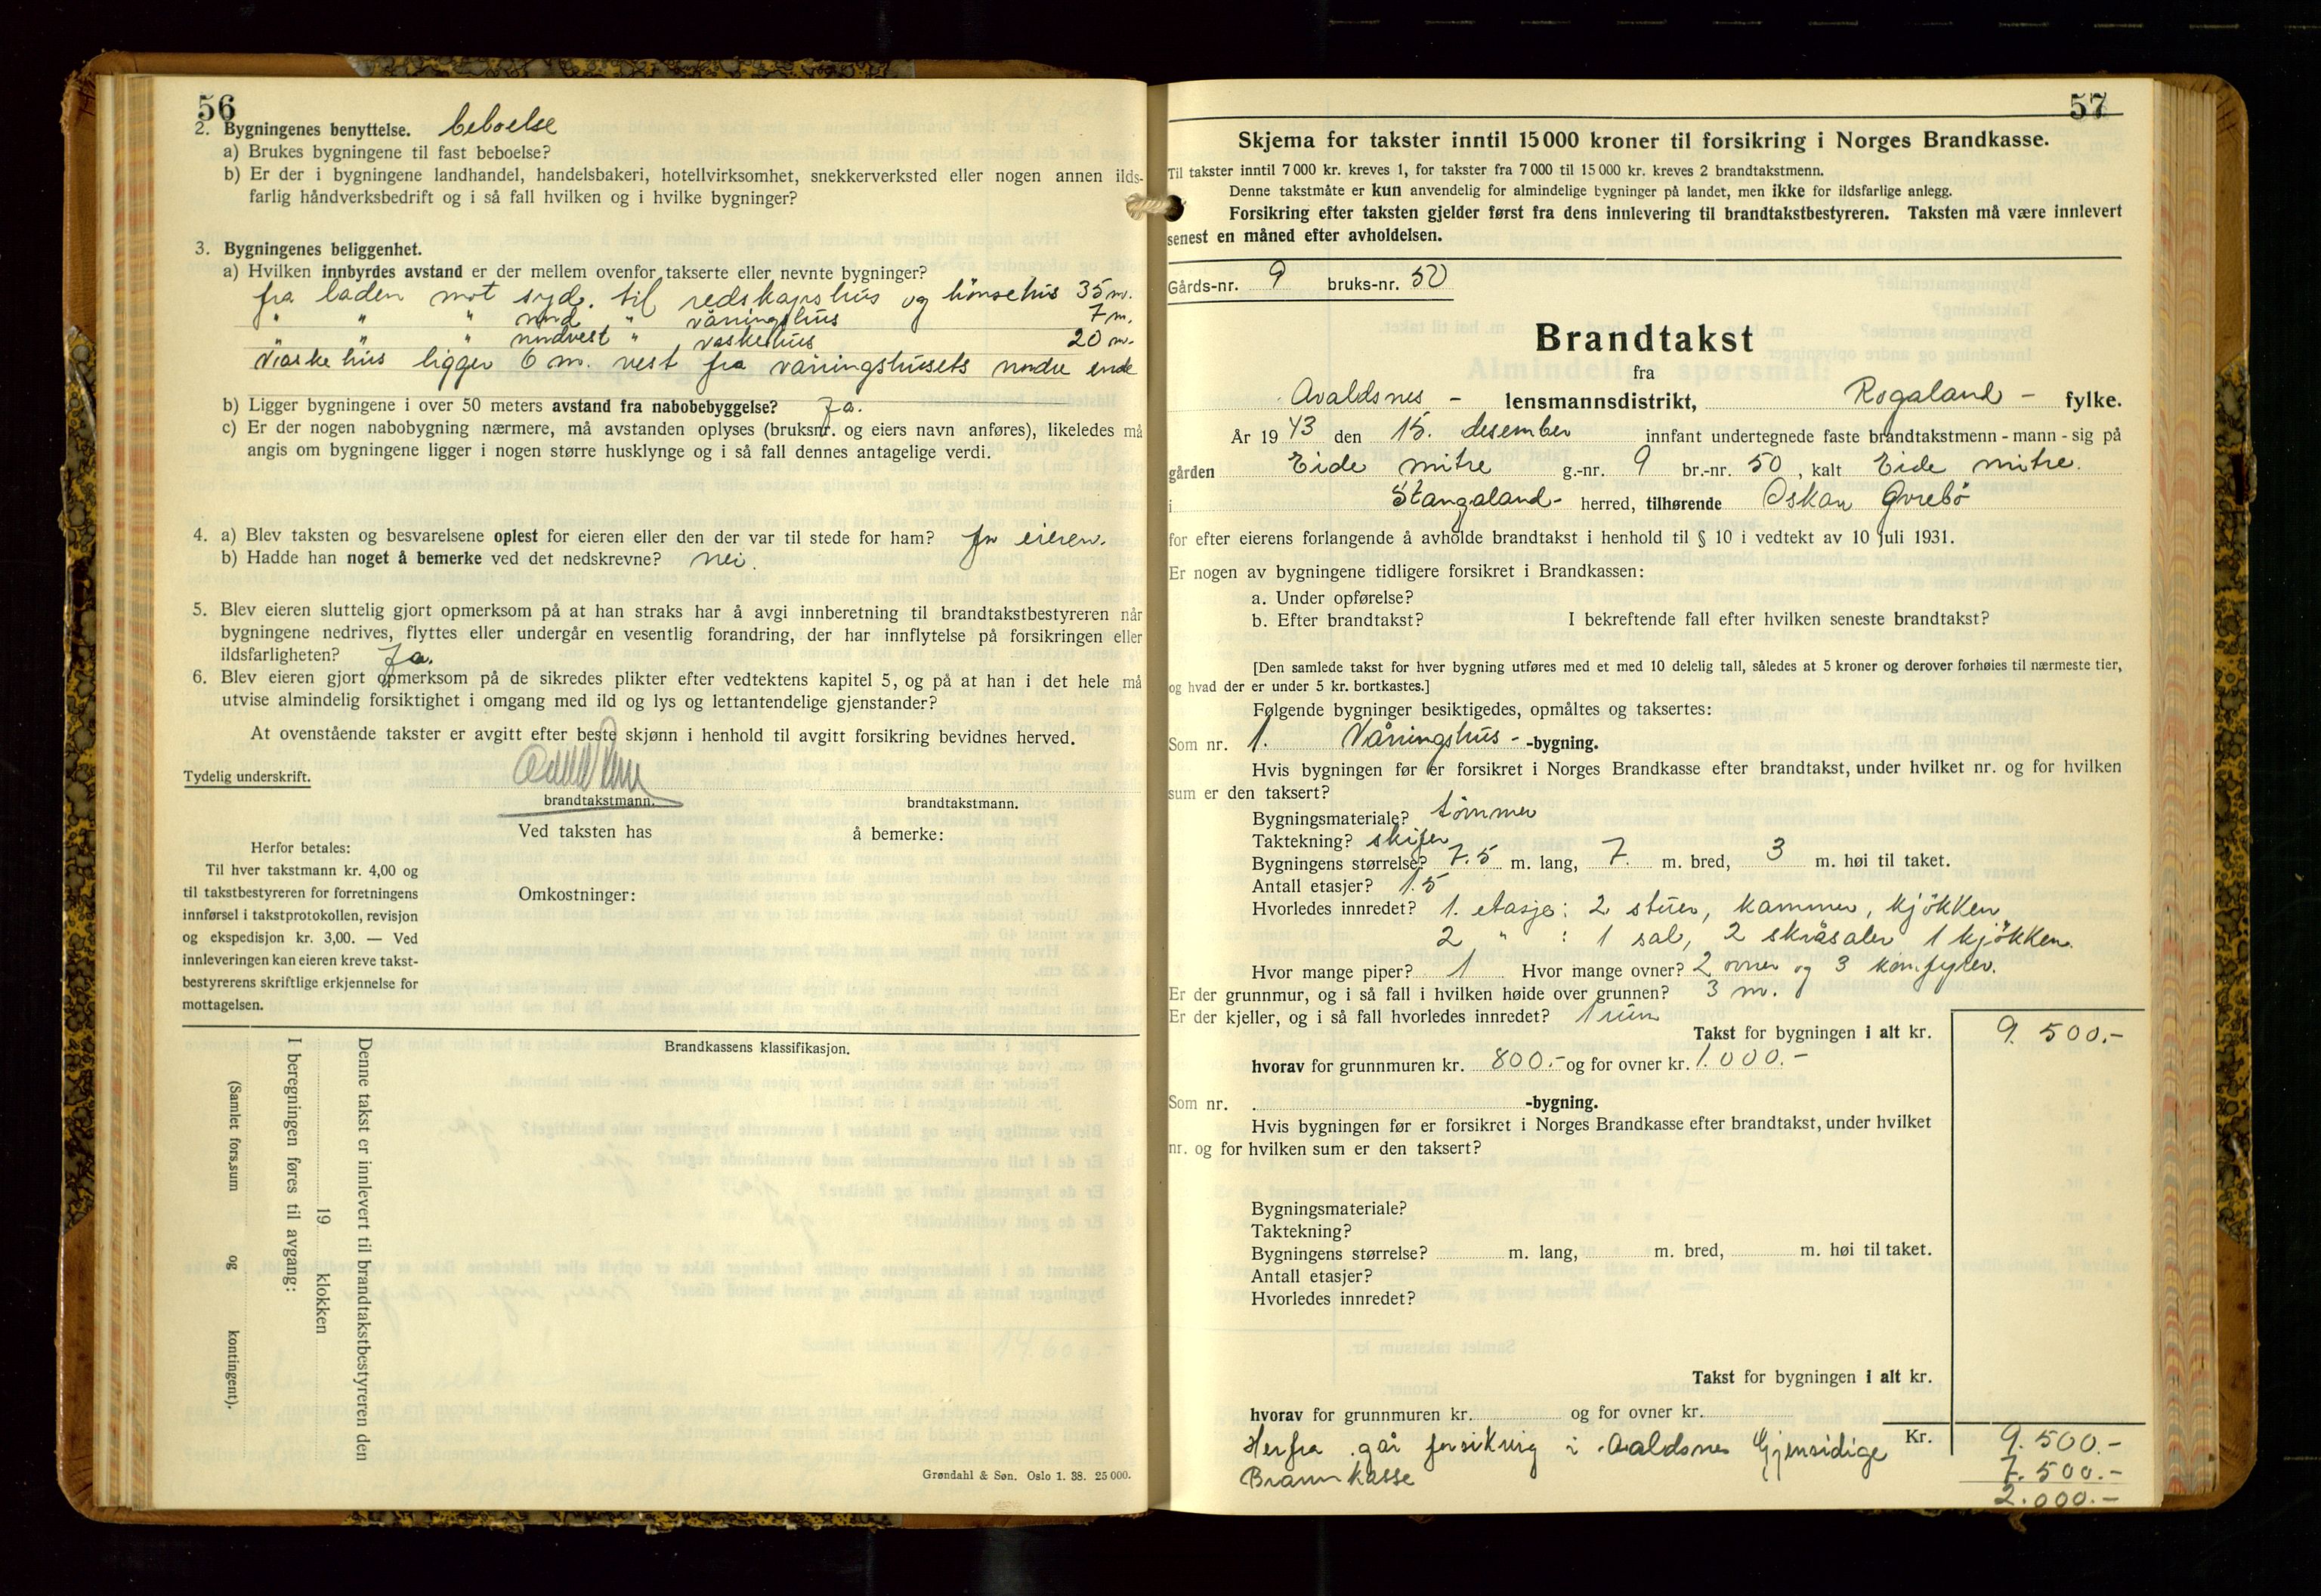 56
2. Bygningenes benyttelse. beboelse
a) Brukes bygningene til fast beboelse?
b) Er der i bygningene landhandel, handelsbakeri, hotellvirksomhet, snekkerverksted eller nogen annen ilds-
farlig håndverksbedrift og i så fall hvilken og i hvilke bygninger?
3. Bygningenes beliggenhet.
a) Hvilken innbyrdes avstand er der mellem ovenfor takserte eller nevnte bygninger?
fra laden mot syd. til redskapshus og hönsehus 35 m.
" " " nord " våningshus 7 m.
" " " nordvest " vaskehus 20 m.
Vaskehus ligger 6 m. vest fra våningshusets nordre ende
b) Ligger bygningene i over 50 meters avstand fra nabobebyggelse? Ja.
c) Er der nogen nabobygning nærmere, må avstanden oplyses (bruksnr. og eiers navn anføres), likeledes må
angis om bygningene ligger i nogen større husklynge og i så fall dennes antagelige verdi.
4. a) Blev taksten og besvarelsene oplest for eieren eller den der var til stede for ham? for eieren.
b) Hadde han noget å bemerke ved det nedskrevne? nei.
5. Blev eieren sluttelig gjort opmerksom på at han straks har å avgi innberetning til brandtakstbestyreren når
bygningene nedrives, flyttes eller undergår en vesentlig forandring, der har innflytelse på forsikringen eller
ildsfarligheten? Ja.
6. Blev eieren gjort opmerksom på de sikredes plikter efter vedtektens kapitel 5, og på at han i det hele må
utvise almindelig forsiktighet i omgang med ild og lys og lettantendelige gjenstander?
At ovenstående takster er avgitt efter beste skjønn i henhold til avgitt forsikring bevidnes herved.
Tydelig underskrift.
brandtakstmann. brandtakstmann.
Ved taksten has å bemerke:
Herfor betales:
Til hver takstmann kr. 4,00 og
til takstbestyreren for forretningens
innførsel i takstprotokollen, revisjon
og ekspedisjon kr. 3,00. — Ved
innleveringen kan eieren kreve takst-
bestyrerens skriftlige erkjennelse for
mottagelsen.
Omkostninger:
Brandkassens klassifikasjon.
Denne takst er innlevert til brandtakstbestyreren den
19 klokken
I beregningen føres til avgang:
(Samlet fors.sum og kontingent).
Grøndahl & Søn. Oslo 1. 38. 25 000.
57
Skjema for takster inntil 15 000 kroner til forsikring i Norges Brandkasse.
Til takster inntil 7 000 kr. kreves 1, for takster fra 7 000 til 15 000 kr. kreves 2 brandtakstmenn.
Denne takstmåte er kun anvendelig for almindelige bygninger på landet, men ikke for ildsfarlige anlegg.
Forsikring efter taksten gjelder først fra dens innlevering til brandtakstbestyreren. Taksten må være innlevert
senest en måned efter avholdelsen.
Gårds-nr. 9 bruks-nr. 50
Brandtakst
fra
Avaldsnes - lensmannsdistrikt, Rogaland - fylke.
År 19 43 den 15. desember innfant undertegnede faste brandtakstmenn - mann - sig på
gården Eide mitre g.-nr. 9 br.-nr. 50, kalt Eide mitre.
i Stangaland - herred, tilhørende Oskar Øvrebö
for efter eierens forlangende å avholde brandtakst i henhold til § 10 i vedtekt av 10 juli 1931.
Er nogen av bygningene tidligere forsikret i Brandkassen:
a. Under opførelse?
b. Efter brandtakst? I bekreftende fall efter hvilken seneste brandtakst?
[Den samlede takst for hver bygning utføres med et med 10 delelig tall, således at 5 kroner og derover forhøies til nærmeste tier,
og hvad der er under 5 kr. bortkastes.]
Følgende bygninger besiktigedes, opmåltes og taksertes:
Som nr. 1. Våningshus - -bygning.
Hvis bygningen før er forsikret i Norges Brandkasse efter brandtakst, under hvilket nr. og for hvilken
sum er den taksert?
Bygningsmateriale? tömmer
Taktekning? skifer
Bygningens størrelse? 7.5 m. lang, 7. m. bred, 3 m. høi til taket.
Antall etasjer? 1.5
Hvorledes innredet? 1. etasje: 2 stuer, kammer, kjökken,
2 " : 1 sal, 2 skråsaler 1 kjökken.
Hvor mange piper? 1 Hvor mange ovner? 2 ovner og 3 komfyrer.
Er der grunnmur, og i så fall i hvilken høide over grunnen? 3 m.
Er der kjeller, og i så fall hvorledes innredet? 1 rum
Takst for bygningen i alt kr. 9.500.-
hvorav for grunnmuren kr. 800.- og for ovner kr. 1.000.-
Som nr. -bygning.
Hvis bygningen før er forsikret i Norges Brandkasse efter brandtakst, under hvilket
nr. og for hvilken sum er den taksert?
Bygningsmateriale?
Taktekning?
Bygningens størrelse? m. lang, m. bred, m. høi til taket.
Antall etasjer?
Hvorledes innredet?
Takst for bygningen i alt kr.
hvorav for grunnmuren kr. og for ovner kr.
Kr. 9.500.-
Herfra går forsikring i Avaldsnes Gjensidige
Brannkasse 7.500.-
2.000.-